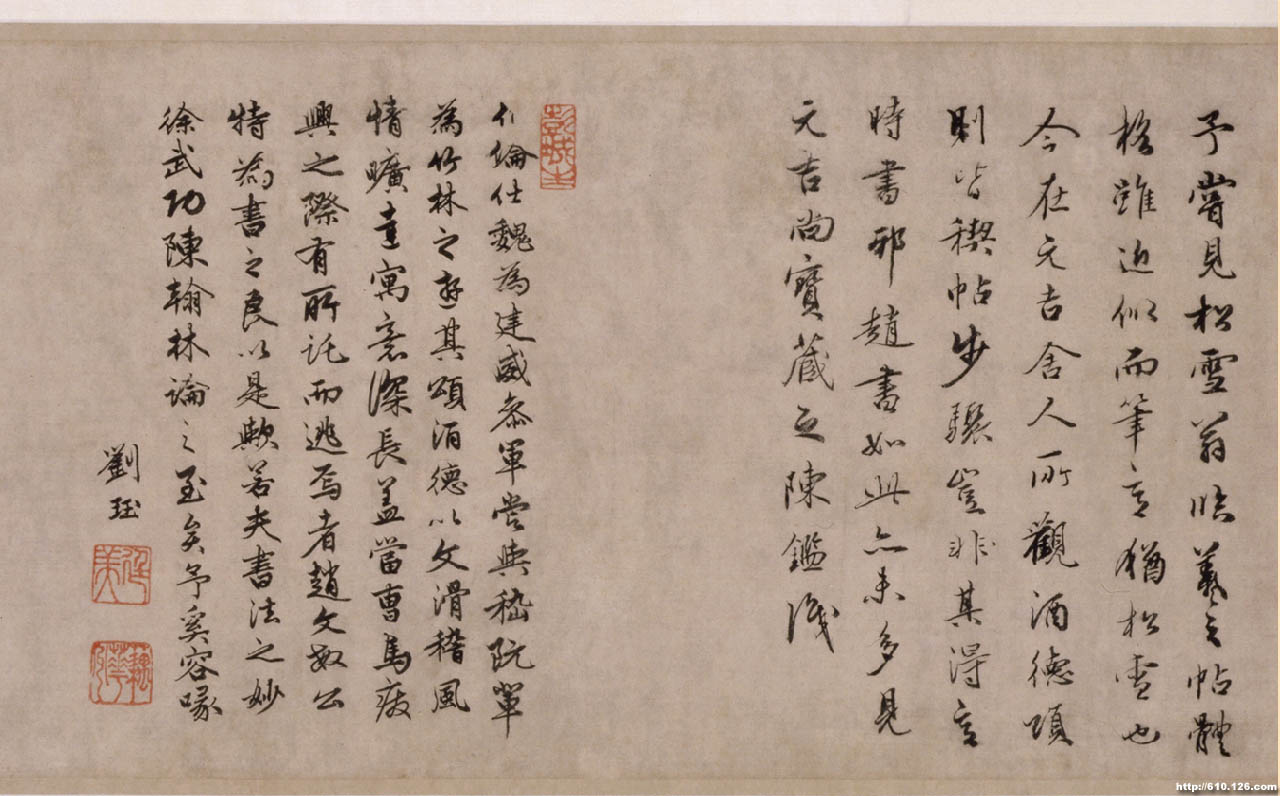 予嘗見松雪翁臨羲之帖體
格雖近似而筆意猶松雪也
今在元吉舍人所觀酒德頌
則皆稧帖步驟豈非其得意
時書邪趙書如此亦未多見
元吉尚寶藏之陳鑑識
伯倫仕魏為建威參軍嘗與嵇阮輩
為竹林之遊其頌酒德以文滑稽風
情曠達寓意深長蓋當曹馬廢
興之際有所託而逃焉者趙文敏公
特為書之良以是歟若夫書法之妙
徐武功陳翰林論之至矣予奚容喙
劉珏
廷美
http://610.126.com